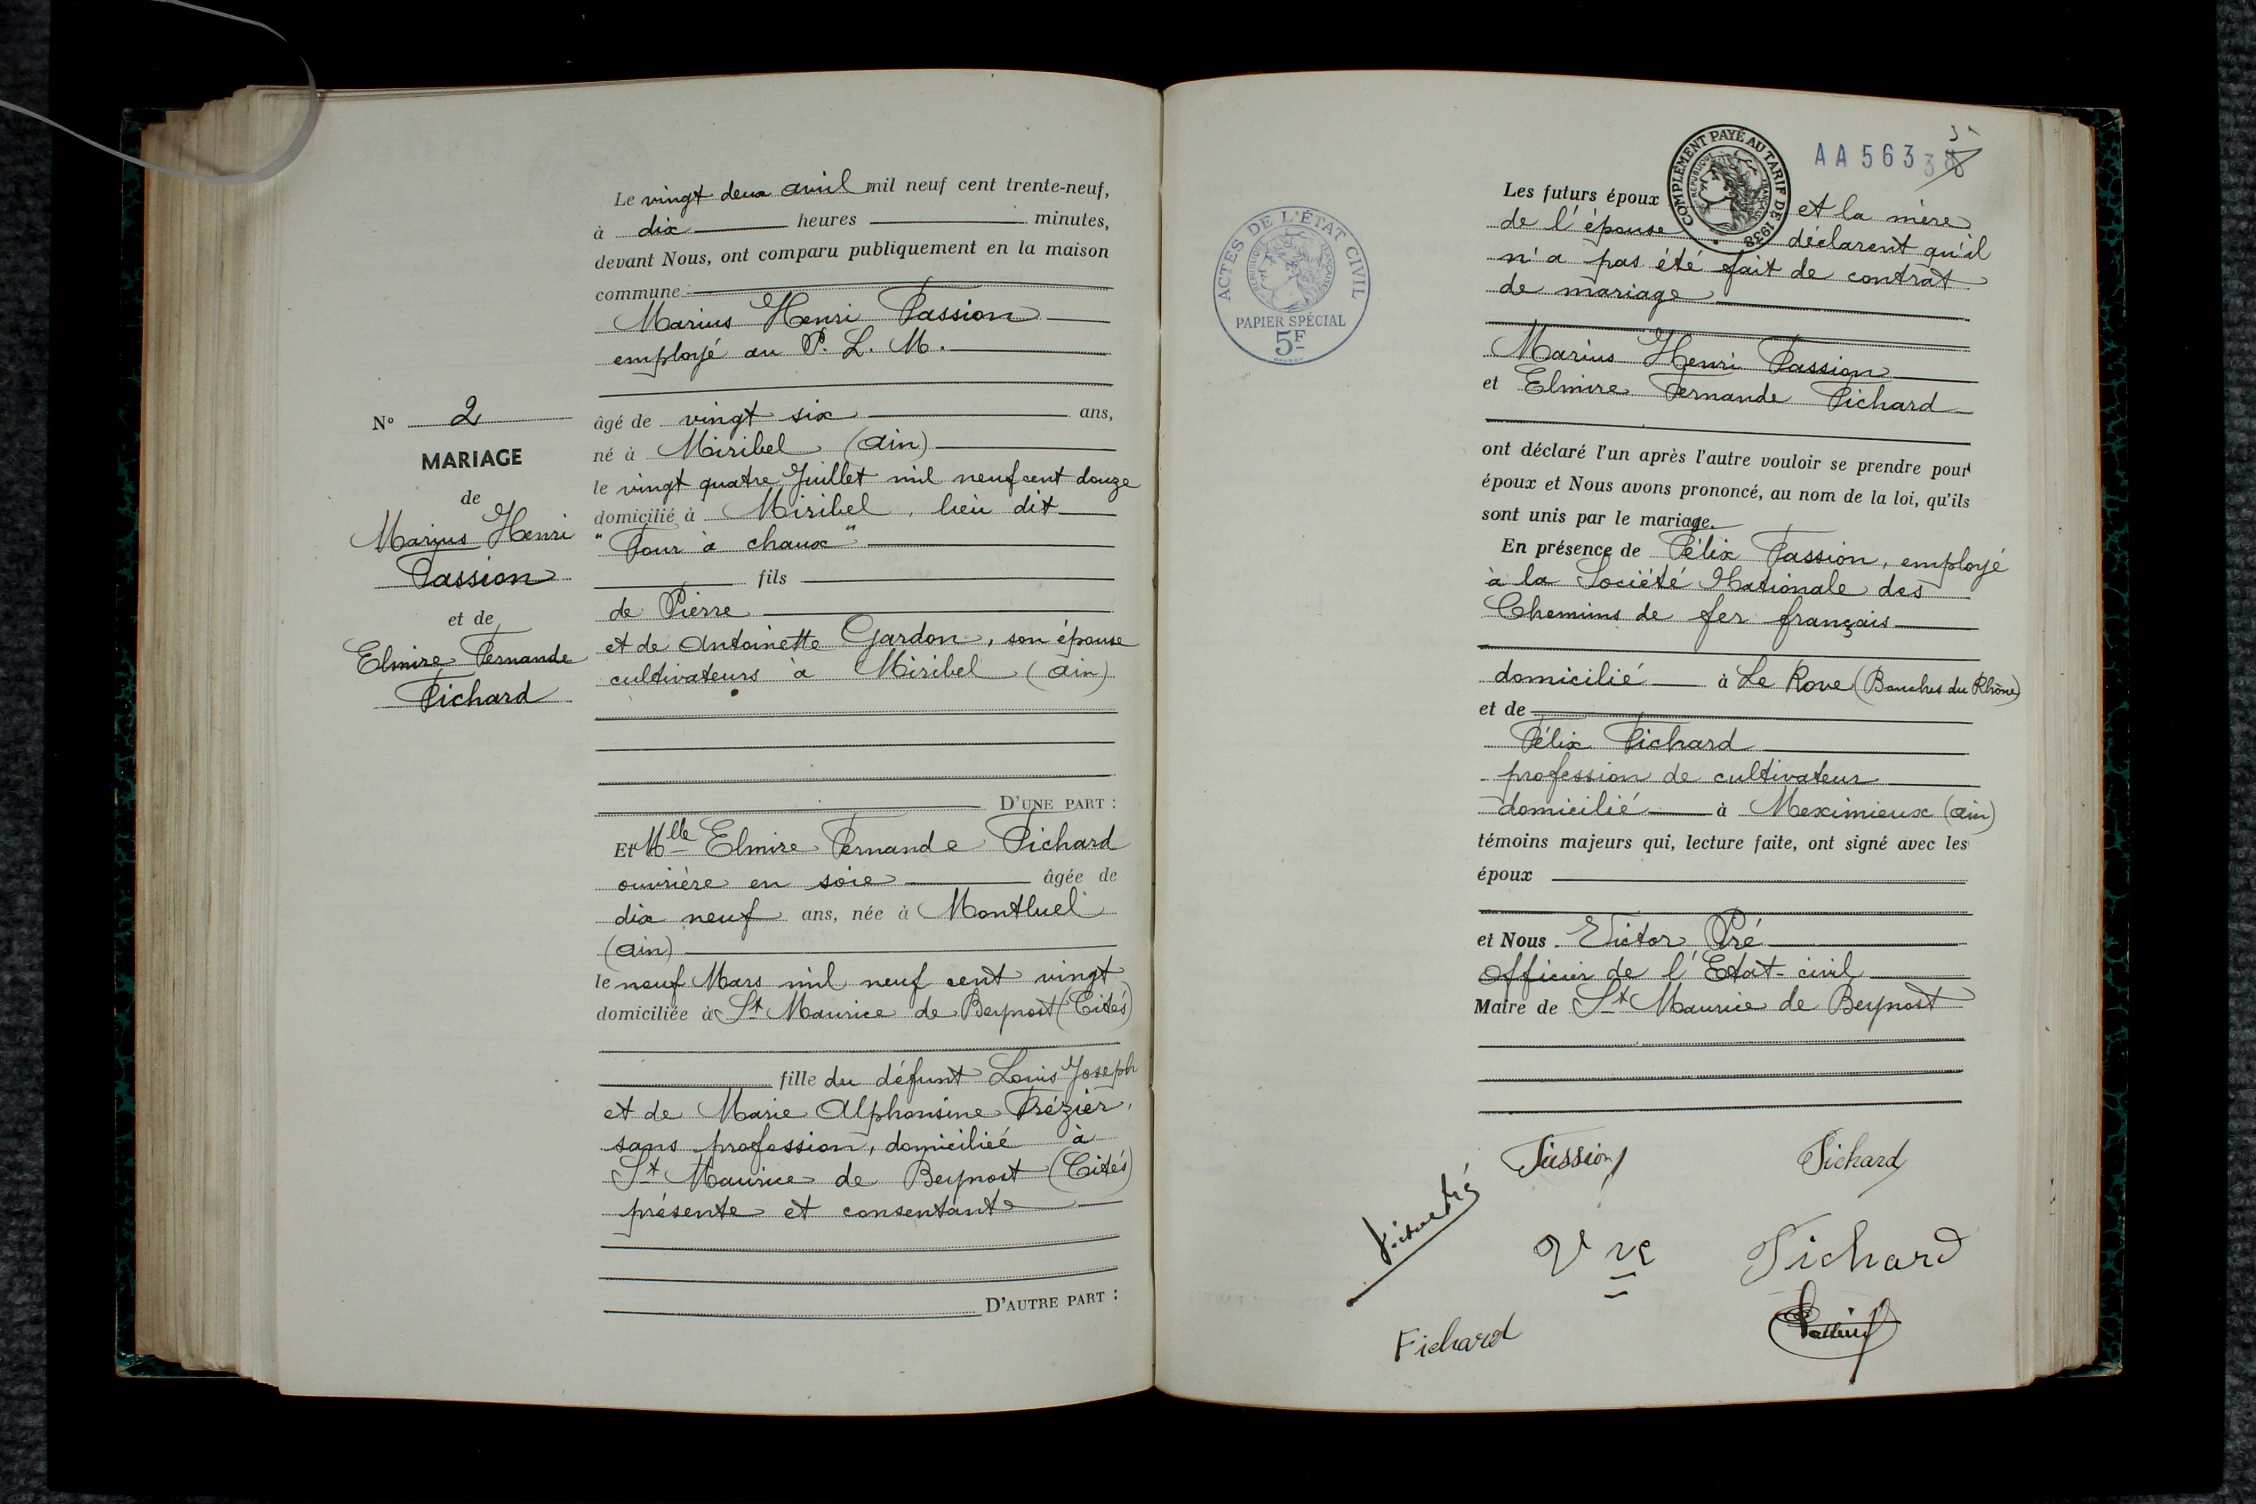 Le vingt deux avril mil neuf cent trente-neuf,
à dix heures minutes,
devant Nous, ont comparu publiquement en la maison
commune
Marius Henri Fassion
employé au P. L. M.
âgé de vingt six ans,
né à Miribel (Ain)
le vingt quatre Juillet mil neuf cent douze
domicilié à Miribel, lieu dit
"Four à chaux"
fils
de Pierre
et de Antoinette Gardon, son épouse
cultivateurs à Miribel (Ain)
D'UNE PART :
N° 2
MARIAGE
de
Marius Henri
Fassion
et de
Elmire Fernande
Fichard
Et Mlle Elmire Fernande Fichard
ouvrière en soie âgée de
dix neuf ans, née à Montluel
(Ain)
le neuf Mars mil neuf cent vingt
domiciliée à St Maurice de Beynost (Cités)
fille du défunt Louis Joseph
et de Marie Alphonsine Frézier,
sans profession, domiciliée à
St Maurice de Beynost (Cités)
présente et consentante
D'AUTRE PART :
ACTES DE L'ÉTAT CIVIL
RÉPUBLIQUE FRANÇAISE
PAPIER SPÉCIAL
5F
COMPLÉMENT PAYÉ AU TARIF DE 1938
RÉPUBLIQUE FRANÇAISE
AA 563
Les futurs époux et la mère
de l'épouse déclarent qu'il
n'a pas été fait de contrat
de mariage
Marius Henri Fassion
et Elmire Fernande Fichard
ont déclaré l'un après l'autre vouloir se prendre pour
époux et Nous avons prononcé, au nom de la loi, qu'ils
sont unis par le mariage.
En présence de Félix Fassion, employé
à la Société Nationale des
Chemins de fer français
domicilié à Le Rove (Bouches du Rhône)
et de
Félix Fichard
profession de cultivateur
domicilié à Meximieux (Ain)
témoins majeurs qui, lecture faite, ont signé avec les
époux
et Nous Victor Pré
Officier de l'Etat-civil
Maire de St Maurice de Beynost
Fassion Fichard
Fichard
Fichard